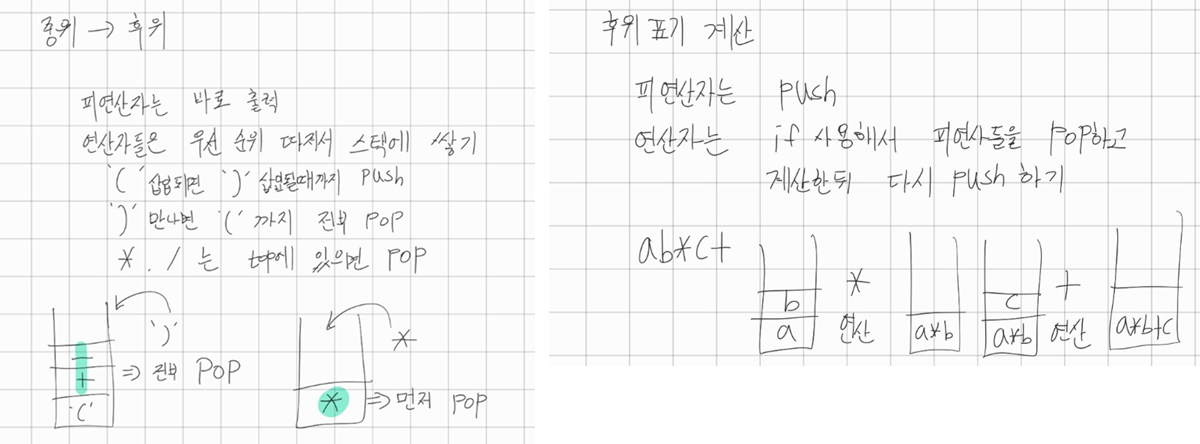 중위 → 후위
피연산자는 바로 출력
연산자들은 우선 순위 따져서 스택에 쌓기
'(' 삽입되면 ')' 삽입될때까지 push
')' 만나면 '(' 까지 전부 pop
*, / 는 top에 있으면 pop
')'
-
+
'('
⇒ 전부 pop
*
*
⇒ 먼저 pop
후위 표기 계산
피연산자는 push
연산자는 if 사용해서 피연사들을 pop하고
계산한뒤 다시 push 하기
ab*c+
b
a
*
연산
a*b
c
a*b
+
연산
a*b+c